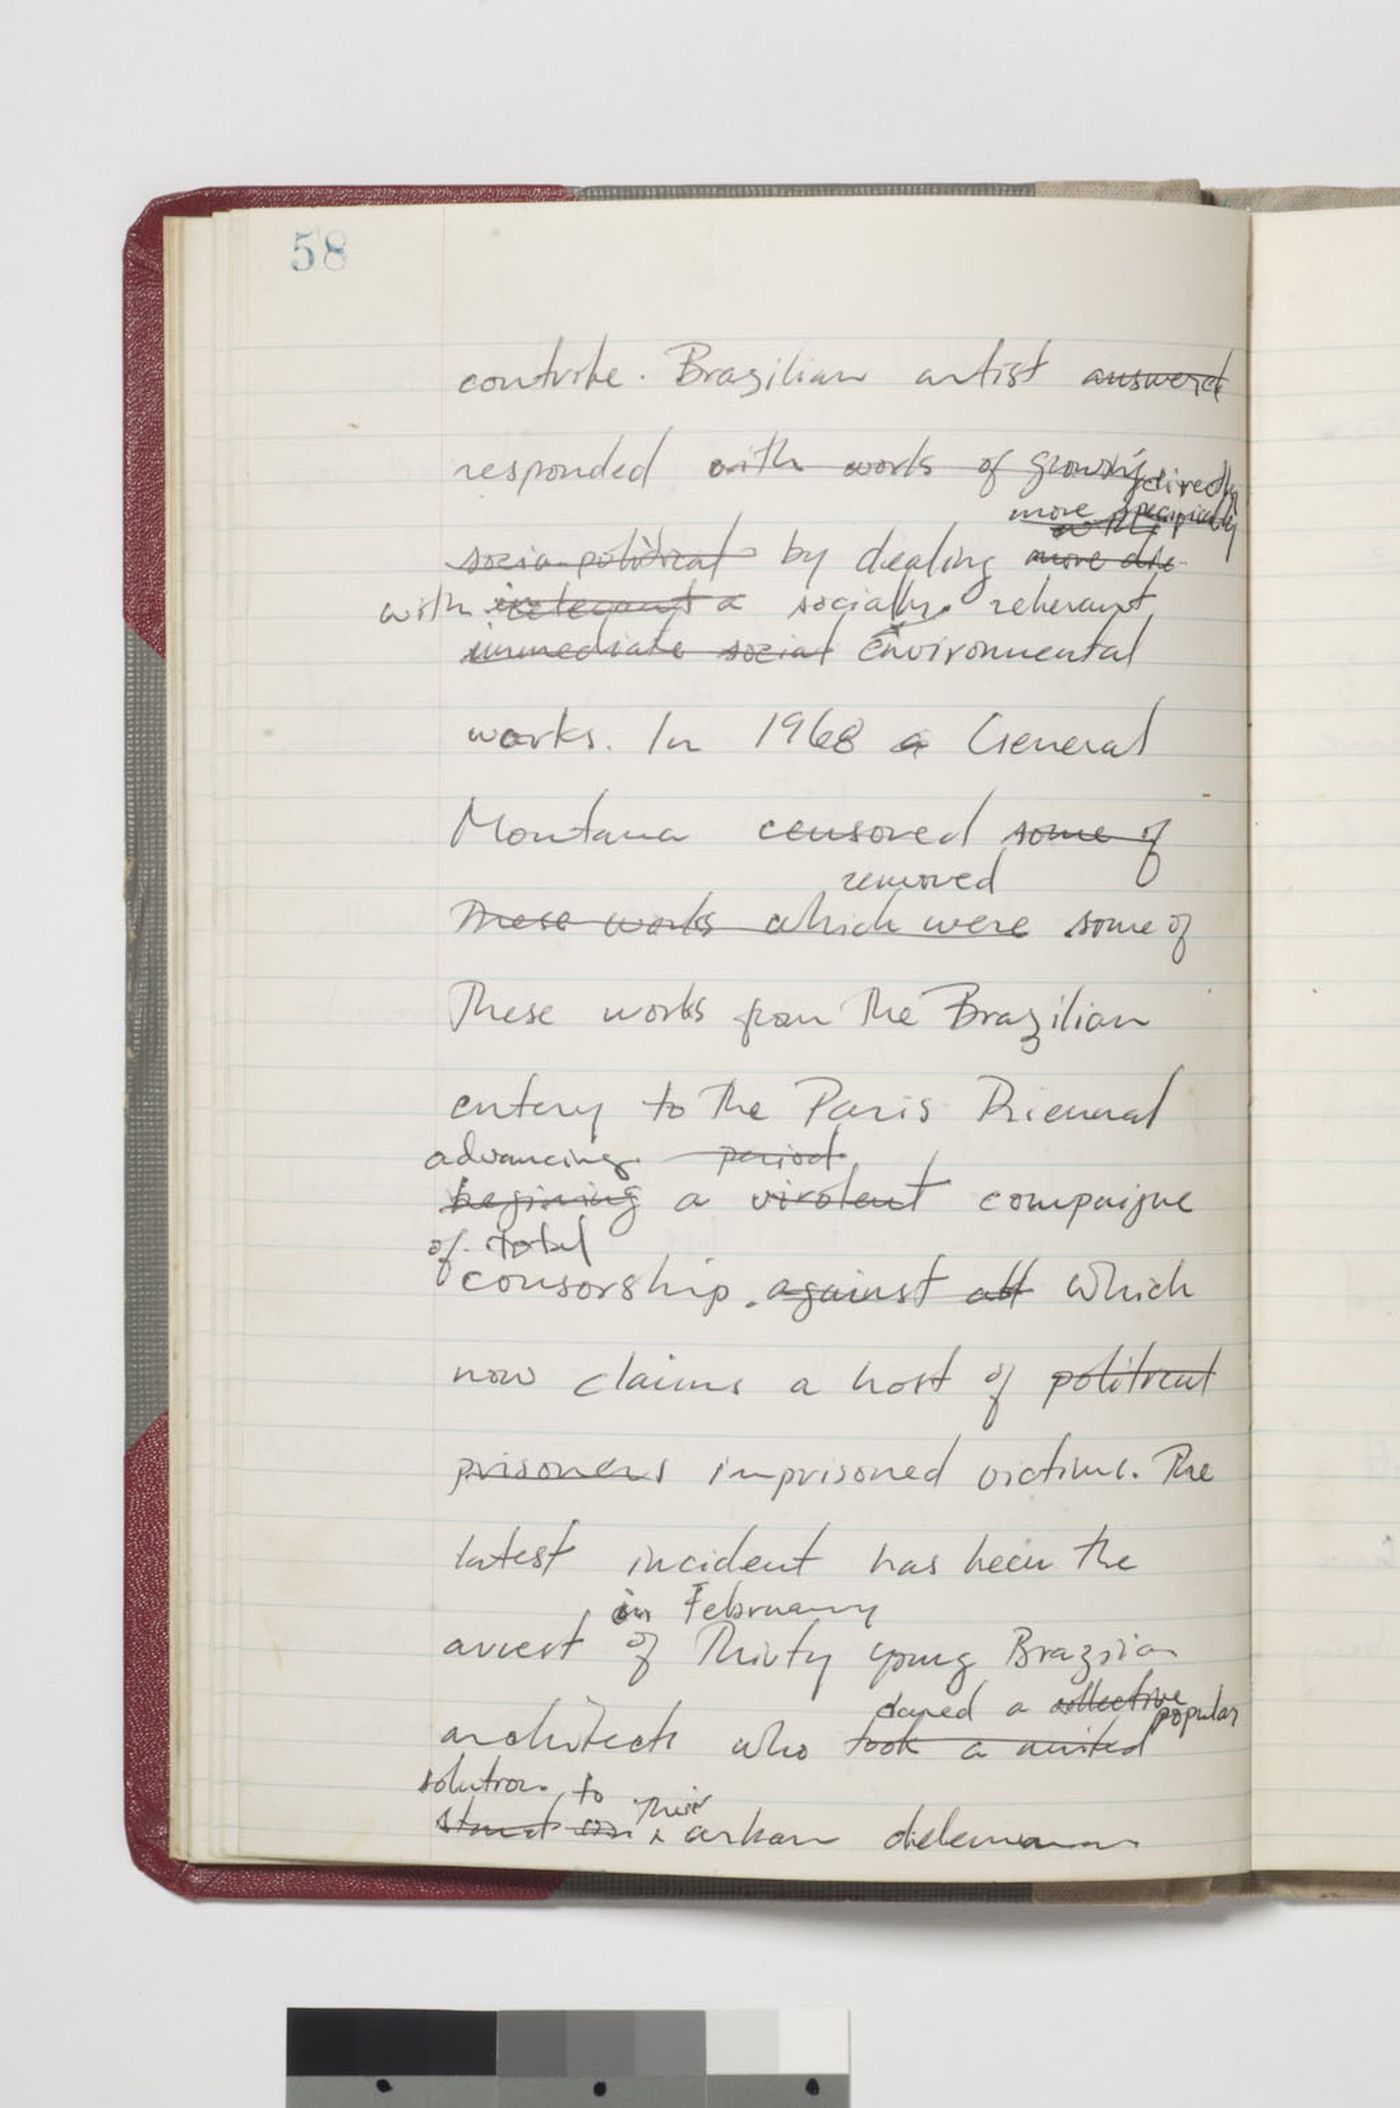 58
contrite. Brazilian artist answerd
responded with works of growing
directly
more specificly
with
socio-political by dealing more dire
with relevant a socially relevant
immediate social Environmental
works. In 1968 a General
Montana censored some of
removed
These works which were some of
These works from The Brazilian
entery to The Paris Biennal
advancing period
begining a virolent compaigne
of total
consorship. against all which
now claims a host of political
prisoners imprisoned victims. The
latest incident has been the
in February
arrest of Thirty young Brazilian
dared a collective popular
architects who took a united
solution to Their
stand on a urban dilemma